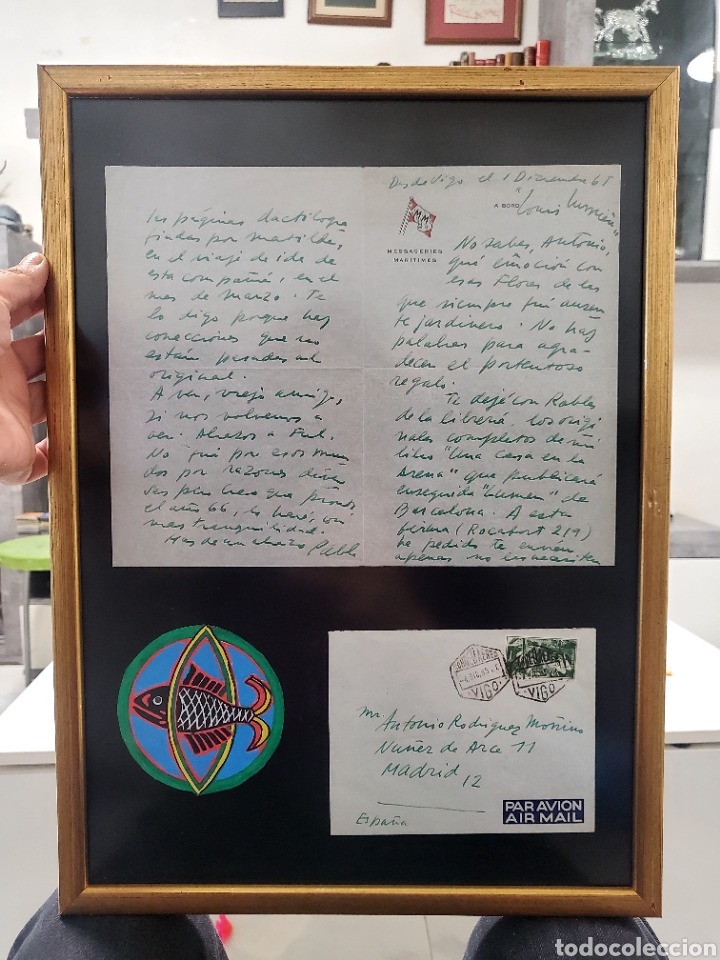 Desde Vigo el 1 Diciembre 65
A BORD "Louis Lumière"
MM
MESSAGERIES
MARITIMES
No sabes, Antonio,
qué emoción con
esas Flores de las
que siempre fué ausen
te jardinero. No hay
palabras para agra-
decer el portentoso
regalo.
Te dejé con Robles
de la librería los origi
nales completos de mi
libro "Una Casa en la
Arena" que publicará
enseguida "Lumen" de
Barcelona. A esta
firma (Rocafort 219)
he pedido te envien
apenas no los necesiten
las páginas dactilogra
fiadas por Matilde,
en el viaje de ida de
esta compañía, en el
mes de marzo. Te
lo digo porque hay
correcciones que no
están pasadas al
original.
A ver, viejo amigo,
si nos volvemos a
ver. Abrazos a
No fui por esos mun
dos por razones diver
sas pero creo que pronto,
el año 66, lo haré, con
mas tranquilidad.
Has de un abrazo Pablo
CORREO AEREO
VIGO
VIGO
Mr Antonio Rodriguez Moñino
Nuñez de Arce 11
Madrid 12
España
PAR AVION
AIR MAIL
todocoleccion